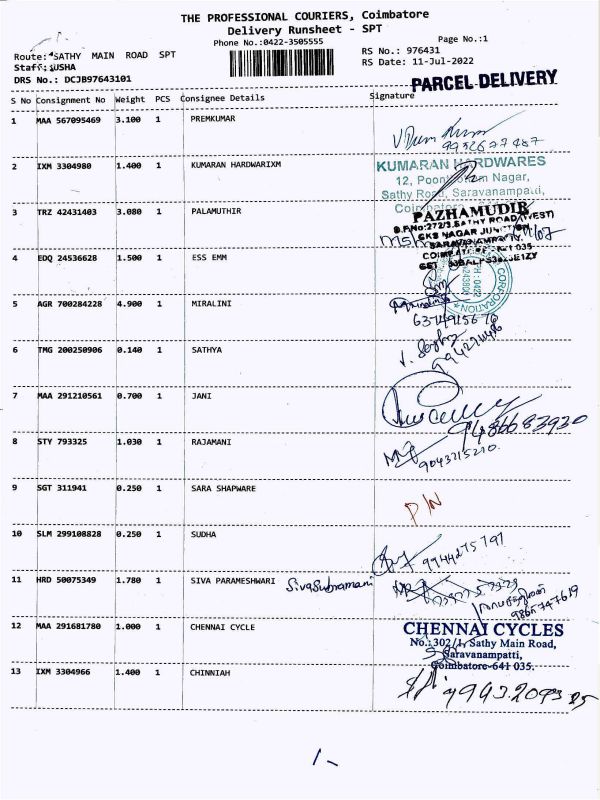 THE PROFESSIONAL COURIERS, Coimbatore
Delivery Runsheet - SPT
Phone No.:0422-3505555
Page No.:1
Route: SATHY MAIN ROAD SPT
RS No.: 976431
Staff: SUSHA
RS Date: 11-Jul-2022
DRS No.: DCJB97643101
PARCEL DELIVERY
S No Consignment No Weight PCS Consignee Details Signature
1 MAA 567095469 3.100 1 PREMKUMAR
2 IXM 3304980 1.400 1 KUMARAN HARDWARIXM
KUMARAN HARDWARES
Nagar,
Sathy Road, Saravanampatti,
3 TRZ 42431403 3.080 1 PALAMUTHIR
PAZHAMUDIR
4 EDQ 24536628 1.500 1 ESS EMM
CORPORATION
5 AGR 700284228 4.900 1 MIRALINI
6 TMG 200250906 0.140 1 SATHYA
7 MAA 291210561 0.700 1 JANI
9486683930
8 STY 793325 1.030 1 RAJAMANI
9043715210
9 SGT 311941 0.250 1 SARA SHAPWARE
10 SLM 299108828 0.250 1 SUDHA
11 HRD 50075349 1.780 1 SIVA PARAMESHWARI Sivasubramani
9865747619
12 MAA 291681780 1.000 1 CHENNAI CYCLE
CHENNAI CYCLES
No.:302/1, Sathy Main Road,
Saravanampatti,
Coimbatore-641 035.
13 IXM 3304966 1.400 1 CHINNIAH